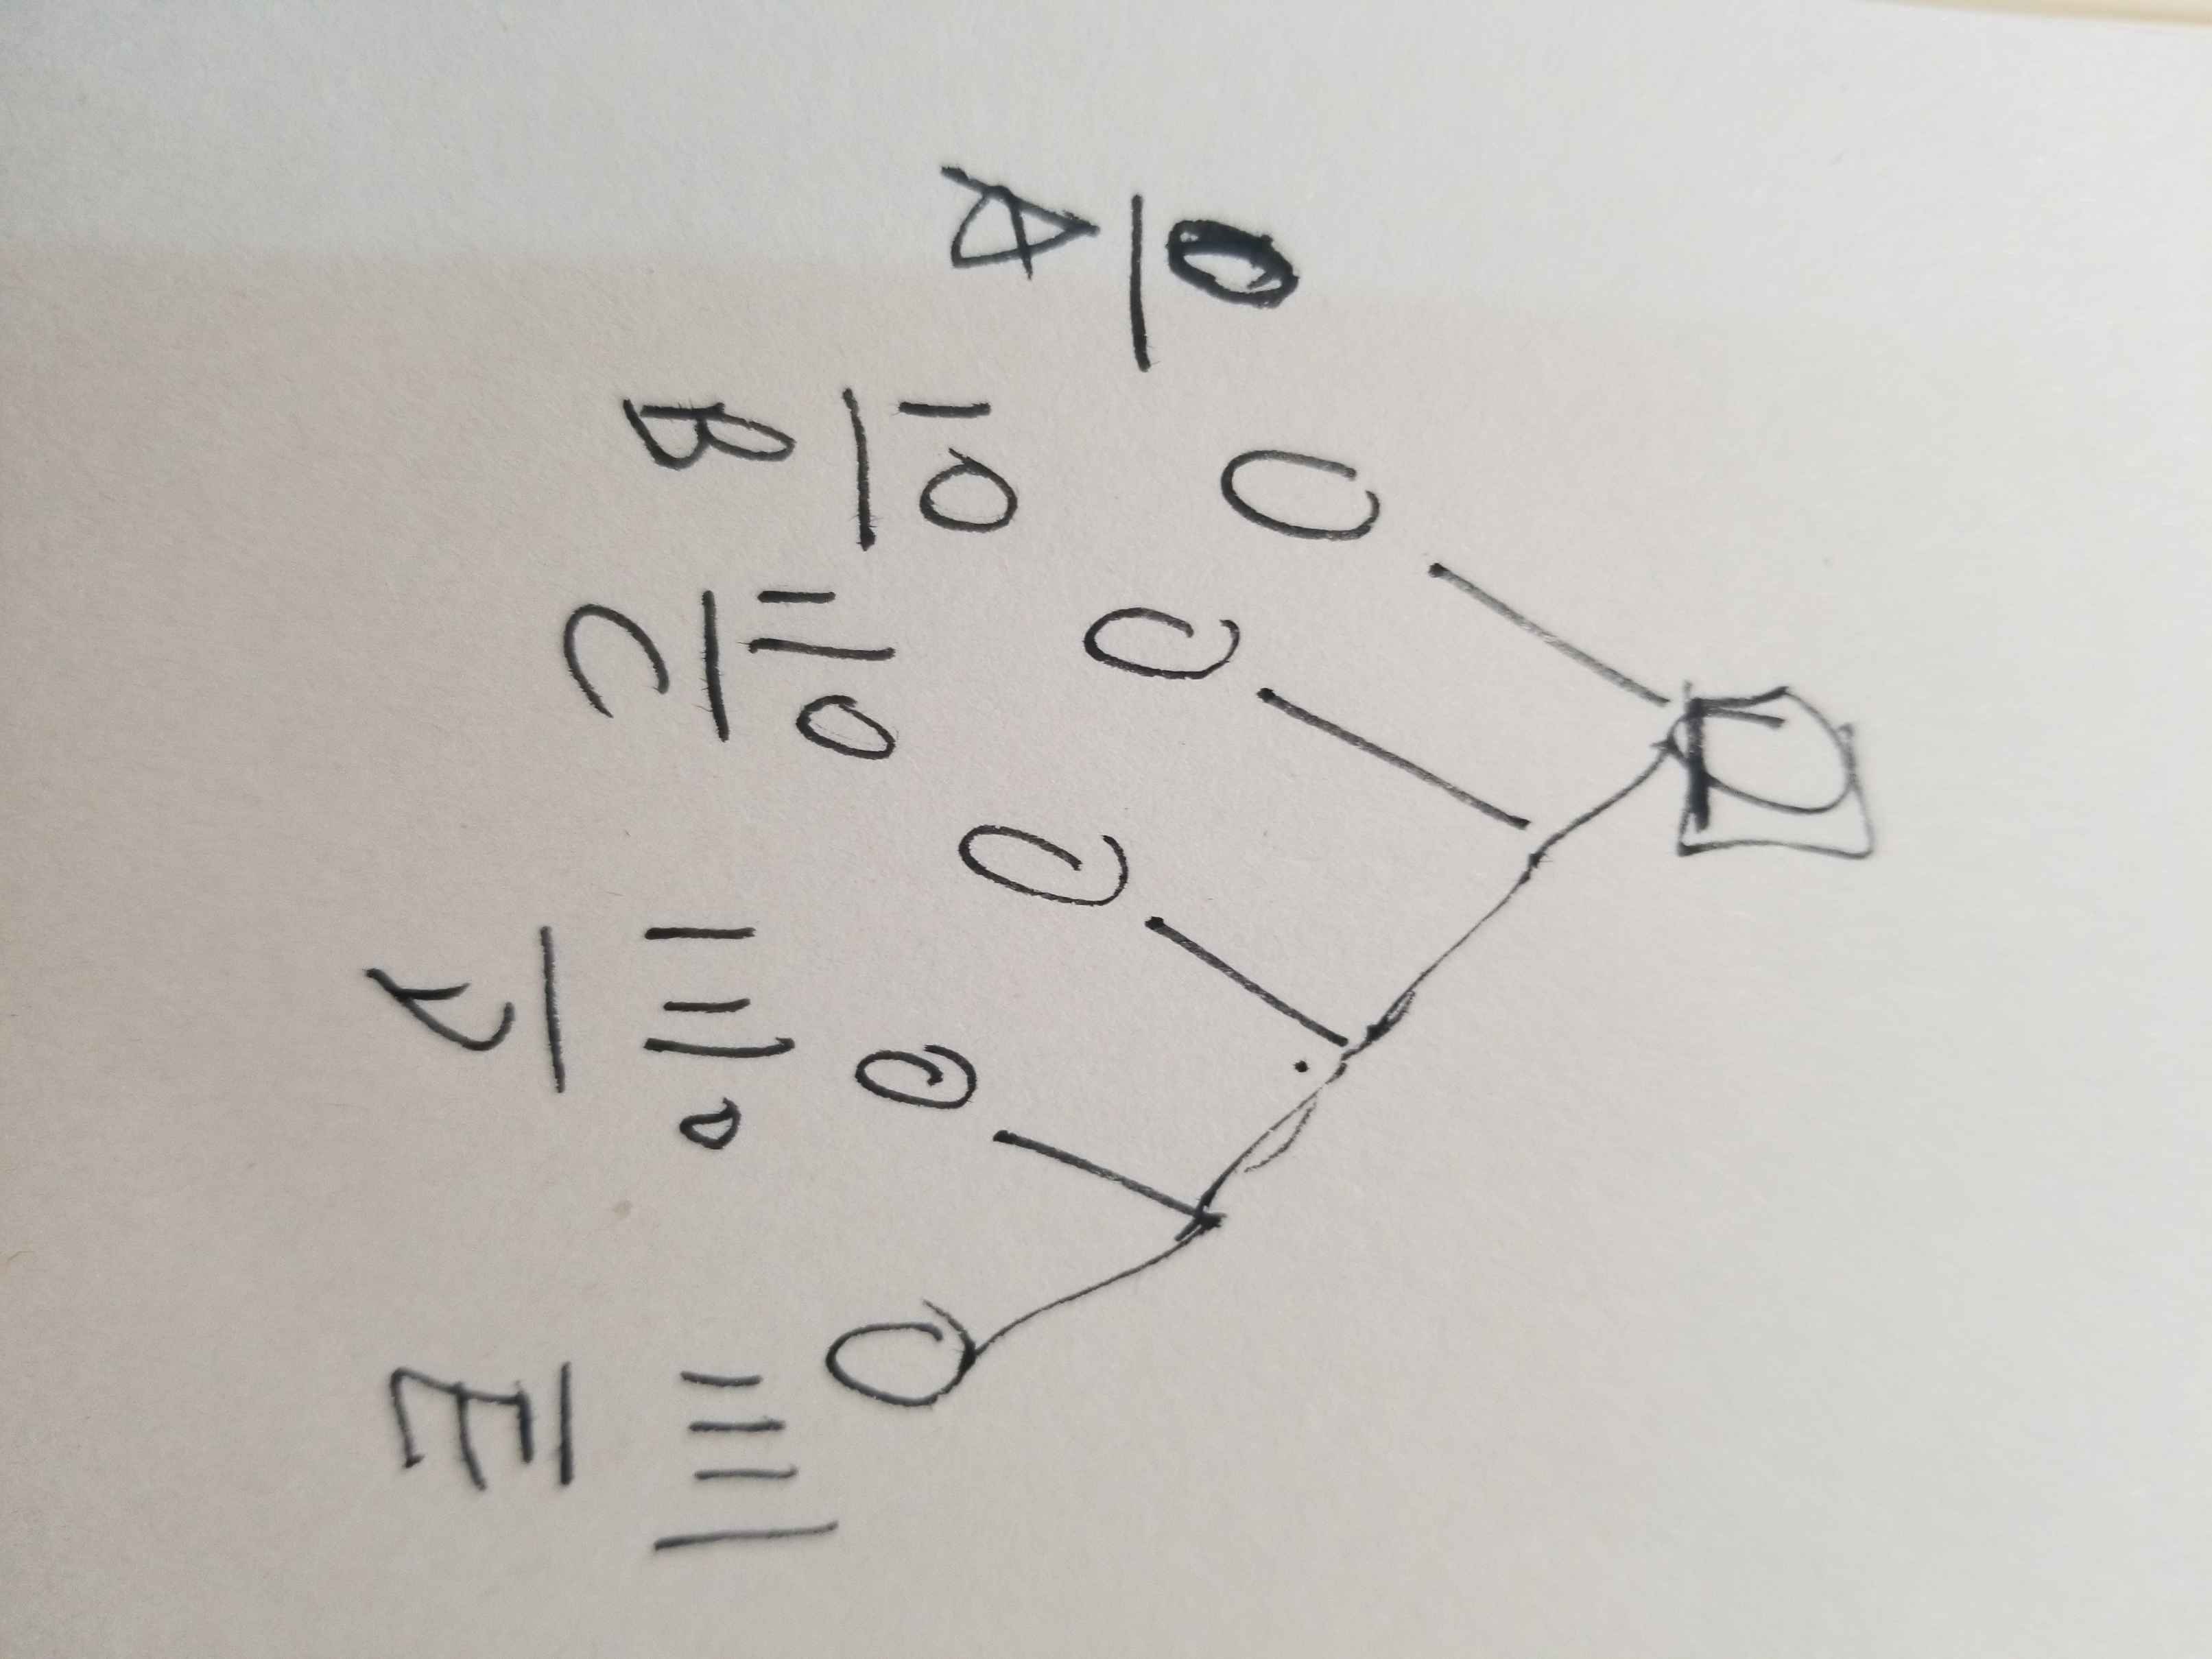 0
A
10
B
110
C
1110
1111
E